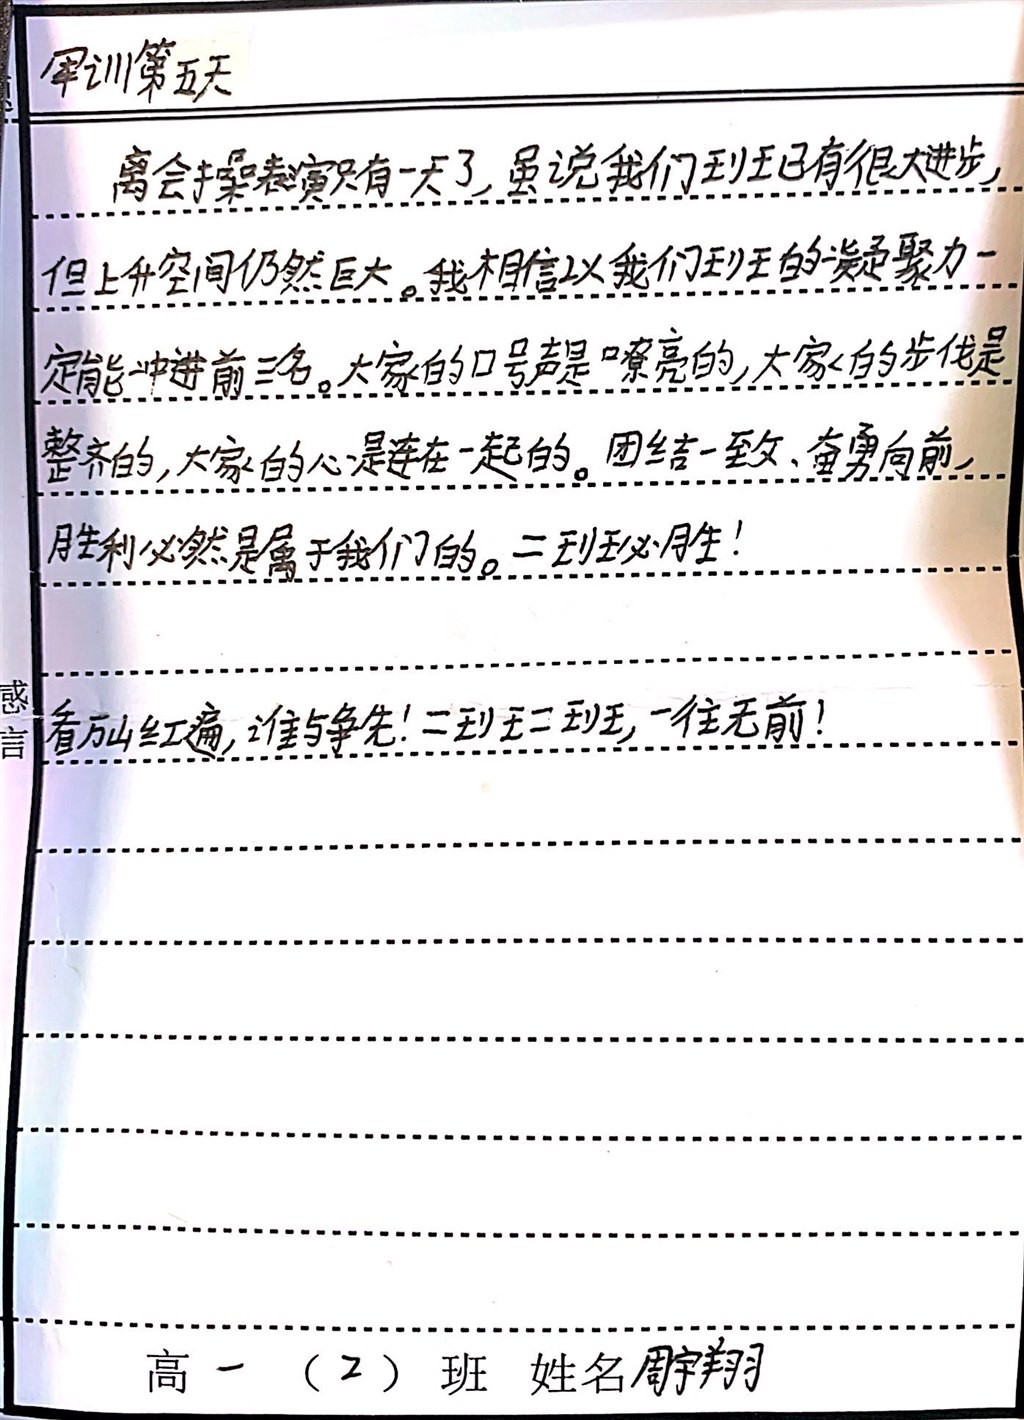 军训第五天
离会操表演只有一天了，虽说我们班已有很大进步，
但上升空间仍然巨大。我相信以我们班的凝聚力一
定能冲进前三名。大家的口号声是嘹亮的，大家的步伐是
整齐的，大家的心是连在一起的。团结一致、奋勇向前，
胜利必然是属于我们的。二班必胜！
感言
看万山红遍，谁与争先！二班二班，一往无前！
高一（2）班 姓名周宇翔